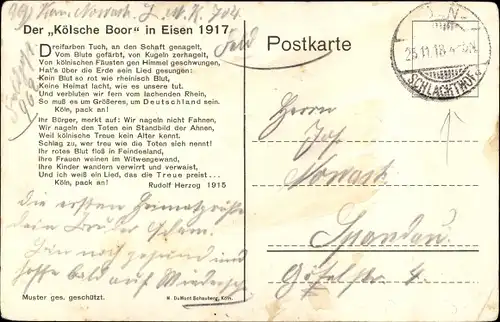 Der „Kölsche Boor“ in Eisen 1917
Dreifarben Tuch, an den Schaft genagelt,
Vom Blute gefärbt, von Kugeln zerhagelt,
Von kölnischen Fäusten gen Himmel geschwungen,
Hat's über die Erde sein Lied gesungen:
Kein Blut so rot wie rheinisch Blut,
Keine Heimat lacht, wie es unsre tut.
Und verbluten wir fern vom lachenden Rhein,
So muß es um Größeres, um Deutschland sein.
Köln, pack an!
Ihr Börger, merkt auf: Wir nageln nicht Fahnen,
Wir nageln den Toten ein Standbild der Ahnen,
Weil kölnische Treue kein Alter kennt.
Schlag zu, wer treu wie die Toten sich nennt!
Ihr rotes Blut floß in Feindesland,
Ihre Frauen weinen im Witwengewand,
Ihre Kinder wandern verwirrt und verwaist,
Und ich weiß ein Lied, das die Treue preist ...
Köln, pack an!
Rudolf Herzog 1915
die ersten Heimatgrüße
dein Bruder
Bin noch gesund und
hoffe bald auf Wiedersehn
Muster ges. geschützt.
M. DuMont Schauberg, Köln.
Postkarte
25.11.18
SCHLACHTHOF
Herrn
Jos.
Nowack
Spandau